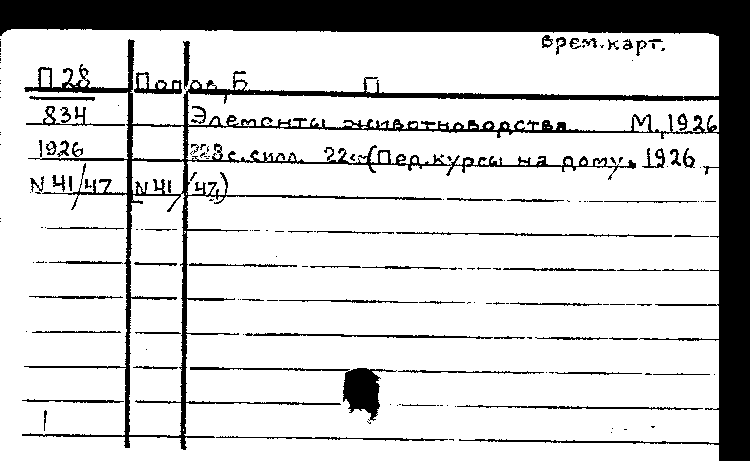 Врем.карт.
П 28 Попов, Б. П
834 Элементы животноводства М., 1926
1926 228 с. с илл. 22см (Пед.курсы на дому. 1926,
N 41/47 N 41/(47)